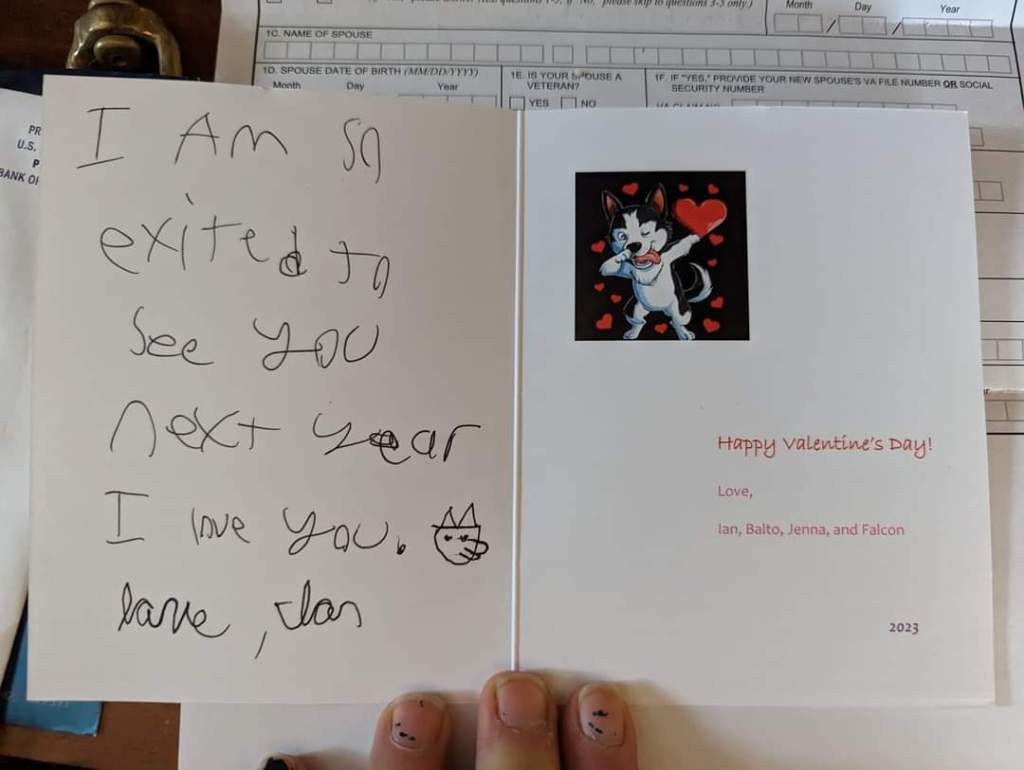 1C. NAME OF SPOUSE
Month Day Year
1D. SPOUSE DATE OF BIRTH (MM/DD/YYYY)
Month Day Year
1E. IS YOUR SPOUSE A
VETERAN?
YES NO
1F. IF "YES," PROVIDE YOUR NEW SPOUSE'S VA FILE NUMBER OR SOCIAL
SECURITY NUMBER
U.S.
I Am so
exited to
see you
next year
I love you.
love, Ian
Happy Valentine's Day!
Love,
Ian, Balto, Jenna, and Falcon
2023